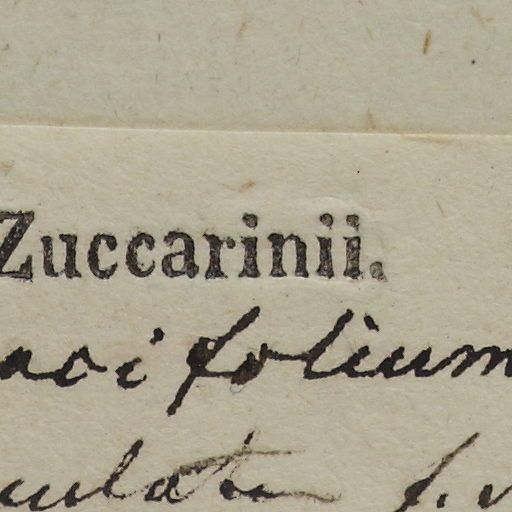 Zuccarinii.
acifolium
culata f.